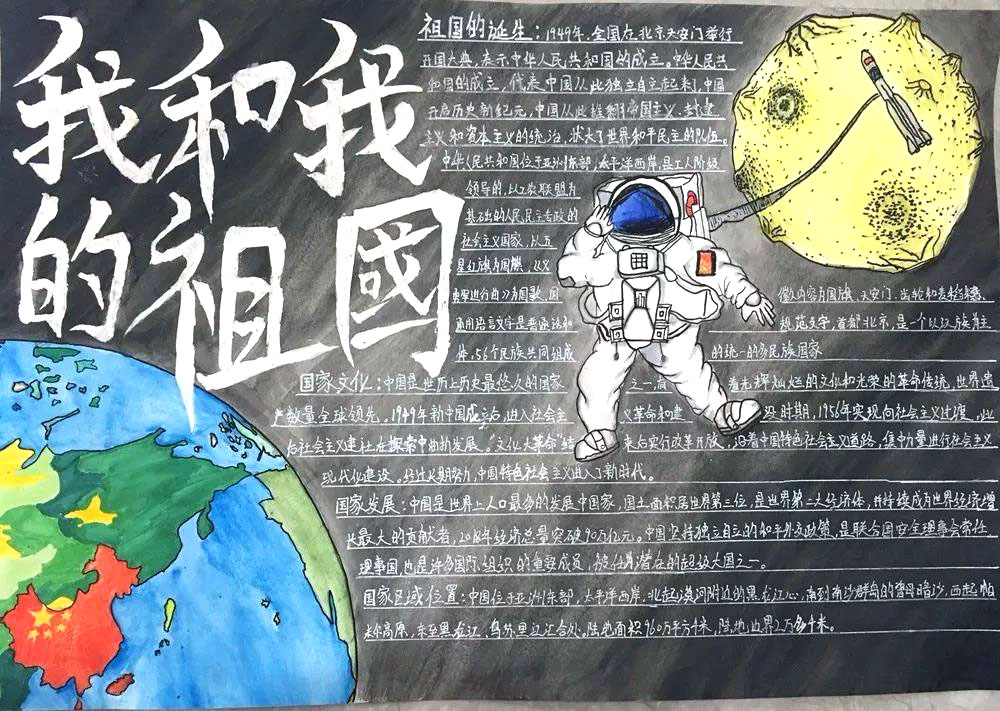 我和我
的祖國
祖国的诞生：1949年，全国在北京天安门举行
开国大典，表示中华人民共和国的成立。中华人民共
和国的成立，代表中国从此独立自主起来了，中国
开启历史新纪元，中国从此推翻了帝国主义、封建
主义和资本主义的统治，状大了世界和平民主的队伍。
中华人民共和国位于亚洲东部，太平洋西岸，是工人阶级
领导的，以工农联盟为
基础的人民民主专政的
社会主义国家，以五
星红旗为国旗，以义
勇军进行曲》为国歌，国 徽内容为国旗、天安门、齿轮和麦稻穗，
通用语言文字是普通话和 规范文字，首都北京，是一个以汉族为主
体，56个民族共同组成 的统一的多民族国家
国家文化：中国是世历上历史最悠久的国家 之一，有 着光辉灿烂的文化和光荣的革命传统，世界遗
产数量全球领先。1949年新中国成立后，进入社会主 义革命和建 设时期，1956年实现向社会主义过渡，此
后社会主义建社在探索中曲折发展。“文化大革命”结 束后实行改革开放，沿着中国特色社会主义道路，集中力量进行社会主义
现代化建设。经过长期努力，中国特色社会主义进入了新时代。
国家发展：中国是世界上人口最多的发展中国家，国土面积居世界第三位，是世界第二大经济体，并持续成为世界经济增
长最大的贡献者，2018年经济总量突破90万亿元。中国坚持独立自立的和平外交政策，是联合国安全理事会常任
理事国，也是许多国际组织的重要成员，被任为潜在的超级大国之一。
国家区域位置：中国位于亚洲东部，太平洋西岸，北起漠河附近的黑龙江心，南到南沙群岛的曾母暗沙，西起帕
米尔高原，东至黑龙江、乌苏里江汇合处。陆地面积960万平方千米，陆地边界2万多千米。